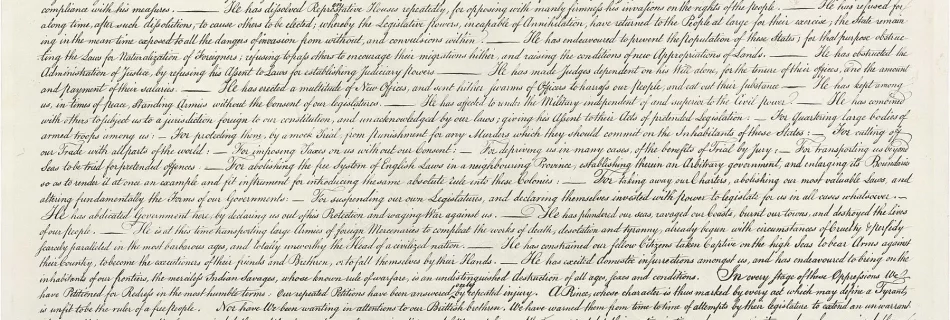 compliance with his measures. — He has dissolved Representative Houses repeatedly, for opposing with manly firmness his invasions on the rights of the people. — He has refused for
a long time, after such dissolutions, to cause others to be elected; whereby the Legislative powers, incapable of Annihilation, have returned to the People at large for their exercise; the State remain
ing in the mean time exposed to all the dangers of invasion from without, and convulsions within. — He has endeavoured to prevent the population of these States; for that purpose obstruc
ting the Laws for Naturalization of Foreigners; refusing to pass others to encourage their migrations hither, and raising the conditions of new Appropriations of Lands. — He has obstructed the
Administration of Justice, by refusing his Assent to Laws for establishing Judiciary powers — He has made Judges dependent on his Will alone, for the tenure of their offices, and the amount
and payment of their salaries. — He has erected a multitude of New Offices, and sent hither swarms of Officers to harrass our people, and eat out their substance — He has kept among
us, in times of peace, Standing Armies without the Consent of our legislatures. — He has affected to render the Military independent of and superior to the Civil power. — He has combined
with others to subject us to a jurisdiction foreign to our constitution, and unacknowledged by our laws; giving his Assent to their Acts of pretended Legislation: — For Quartering large bodies of
armed troops among us: — For protecting them, by a mock Trial, from punishment for any Murders which they should commit on the Inhabitants of these States: — For cutting off
our Trade with all parts of the world: — For imposing Taxes on us without our Consent: — For depriving us in many cases, of the benefits of Trial by Jury; — For transporting us beyond
Seas to be tried for pretended offences — For abolishing the free System of English Laws in a neighbouring Province, establishing therein an Arbitrary government, and enlarging its Boundaries
so as to render it at once an example and fit instrument for introducing the same absolute rule into these Colonies: — For taking away our Charters, abolishing our most valuable Laws, and
altering fundamentally the Forms of our Governments: — For suspending our own Legislatures, and declaring themselves invested with power to legislate for us in all cases whatsoever. —
He has abdicated Government here, by declaring us out of his Protection and waging War against us. — He has plundered our seas, ravaged our Coasts, burnt our towns, and destroyed the lives
of our people. — He is at this time transporting large Armies of foreign Mercenaries to compleat the works of death, desolation and tyranny, already begun with circumstances of Cruelty & perfidy
scarcely paralleled in the most barbarous ages, and totally unworthy the Head of a civilized nation. — He has constrained our fellow Citizens taken Captive on the high Seas to bear Arms against
their Country, to become the executioners of their friends and Brethren, or to fall themselves by their Hands. — He has excited domestic insurrections amongst us, and has endeavoured to bring on the
inhabitants of our frontiers, the merciless Indian Savages, whose known rule of warfare, is an undistinguished destruction of all ages, sexes and conditions. In every stage of these Oppressions We
have Petitioned for Redress in the most humble terms: Our repeated Petitions have been answered only by repeated injury. A Prince, whose character is thus marked by every act which may define a Tyrant,
is unfit to be the ruler of a free people. Nor have We been wanting in attentions to our Brittish brethren. We have warned them from time to time of attempts by their legislature to extend an unwarrant